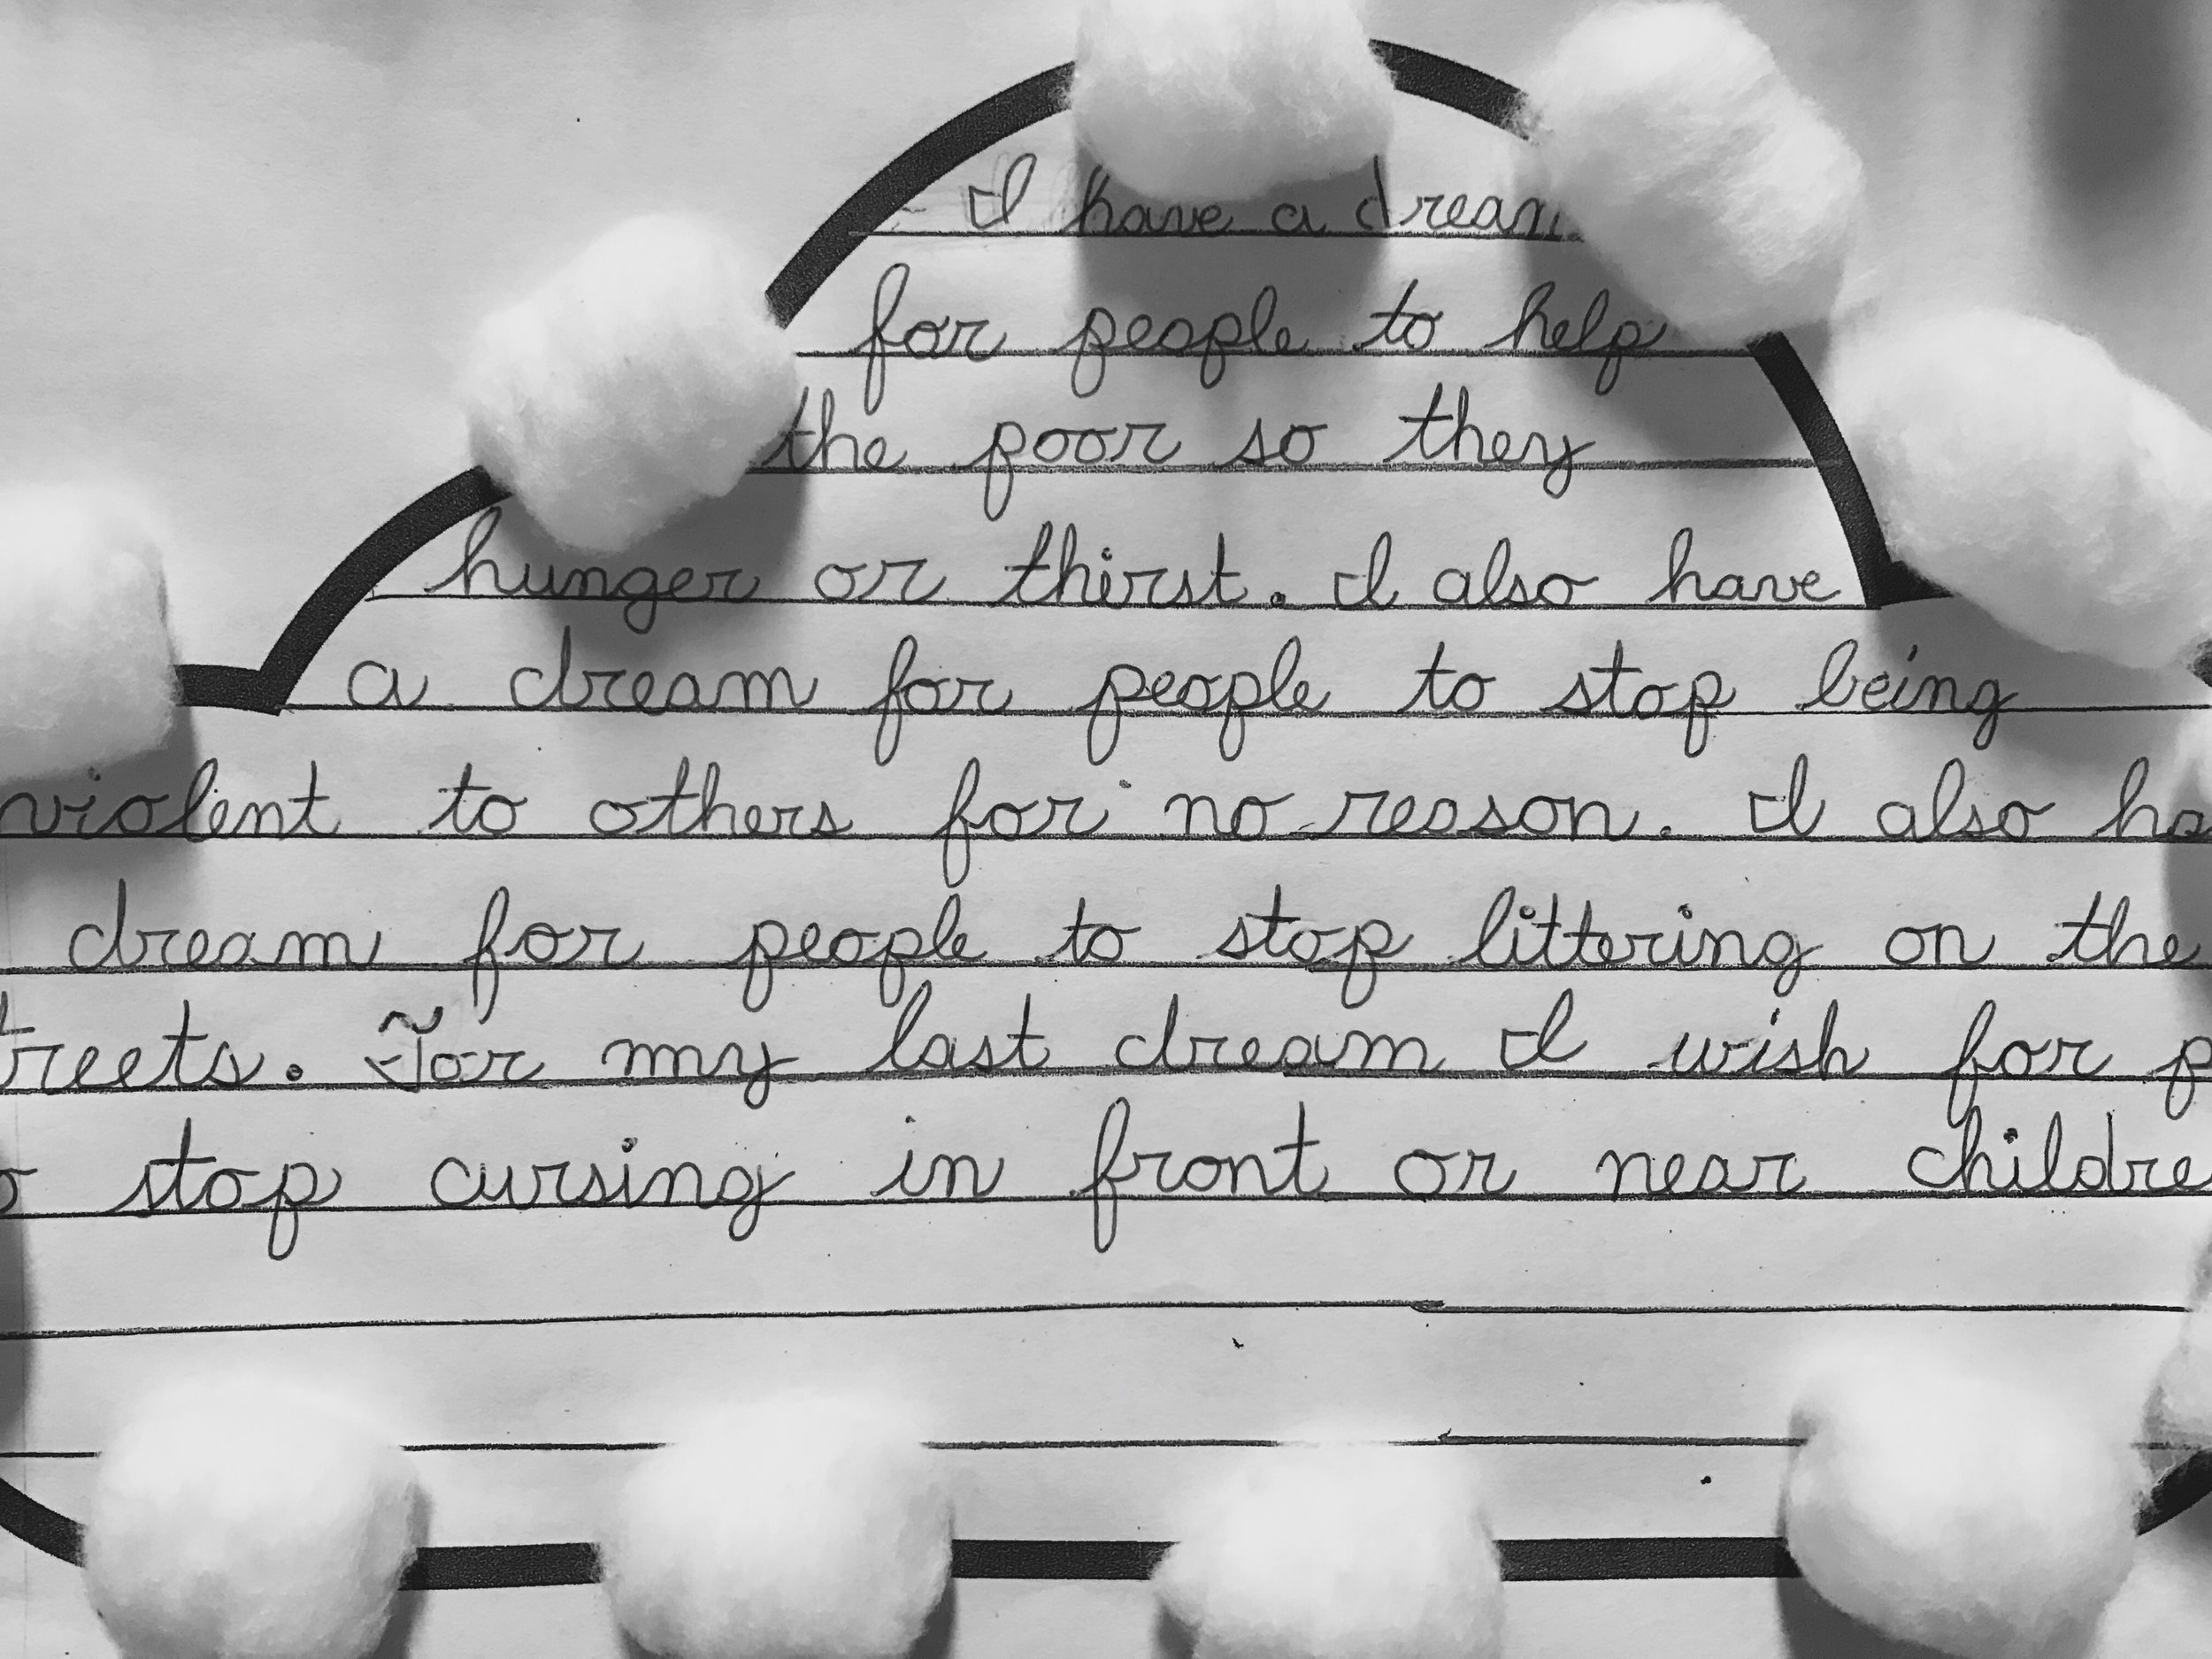 I have a dream
for people to help
the poor so they
hunger or thirst. I also have
a dream for people to stop being
violent to others for no reason. I also ha
dream for people to stop littering on the
treets. For my last dream I wish for p
o stop cursing in front or near childre